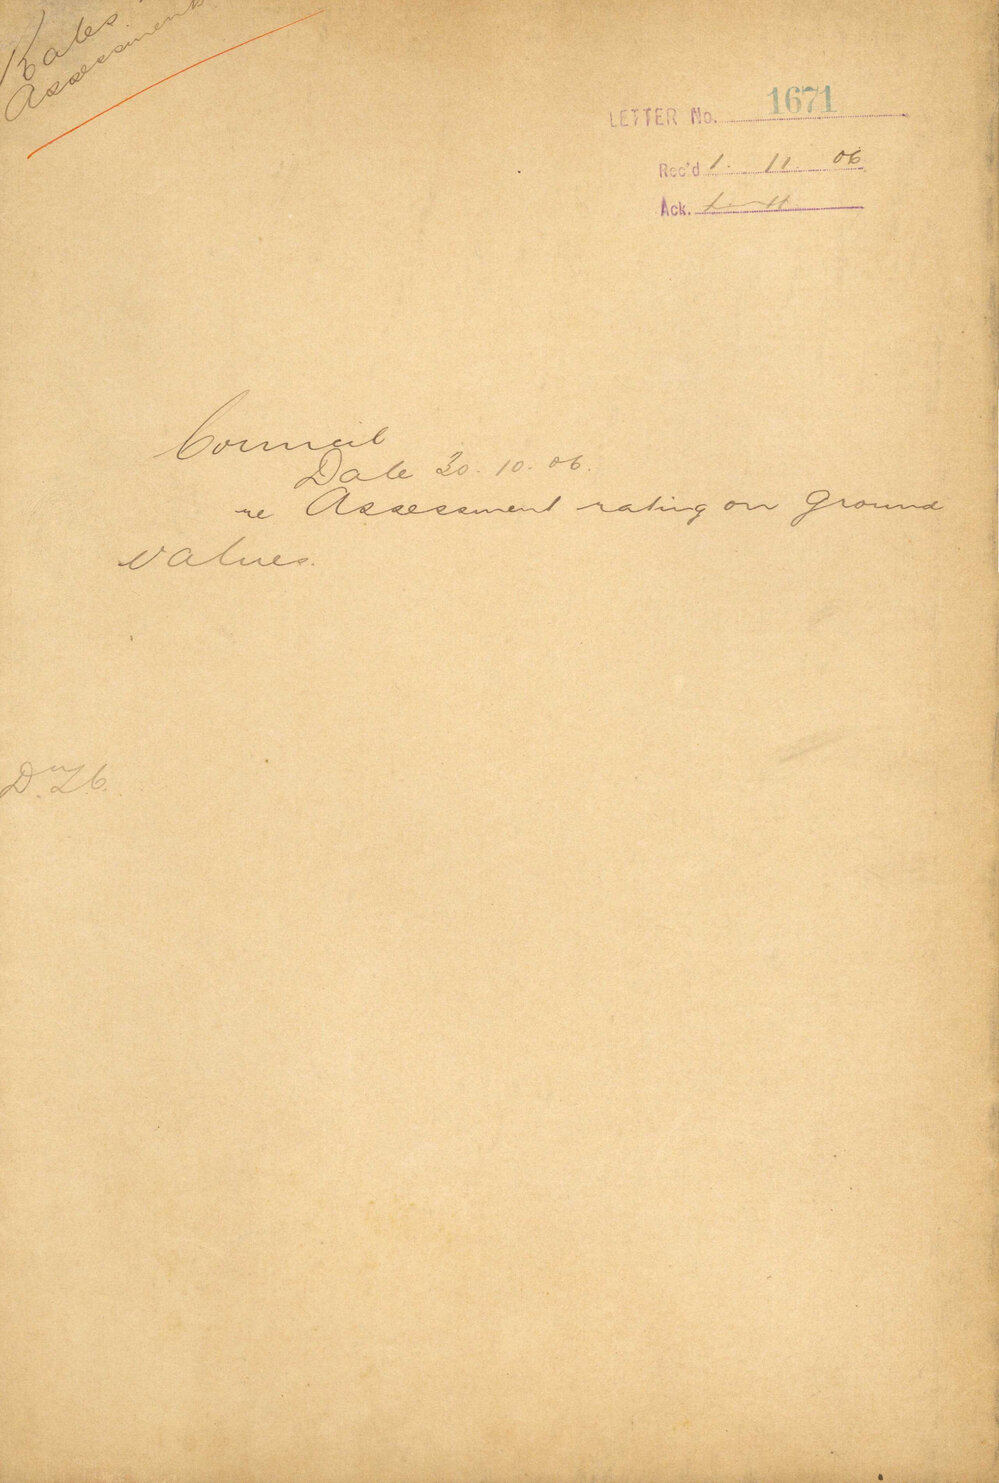 Rates
Assessments
LETTER No. 1671
Rec'd 1. 11. 06
Ack.
Council
Date 30. 10. 06.
re Assessment rating on ground
values.